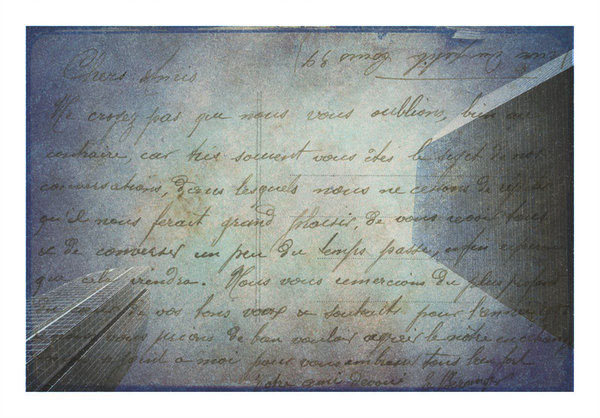 Chers Amis
Ne croyez pas que nous vous oublions, bien au
contraire, car très souvent vous êtes le sujet de nos
conversations, dans lesquels nous ne cessons de
qu'il nous ferait grand plaisir, de vous revoir tous
et de converser un peu du temps passé, enfin espérons
que cela viendra. Nous vous remercions du plus profond
de vos bons vœux et souhaits pour l'année
vous prions de bien vouloir agréer le nôtre en échange
a moi pour vous embrasser tous
votre ami